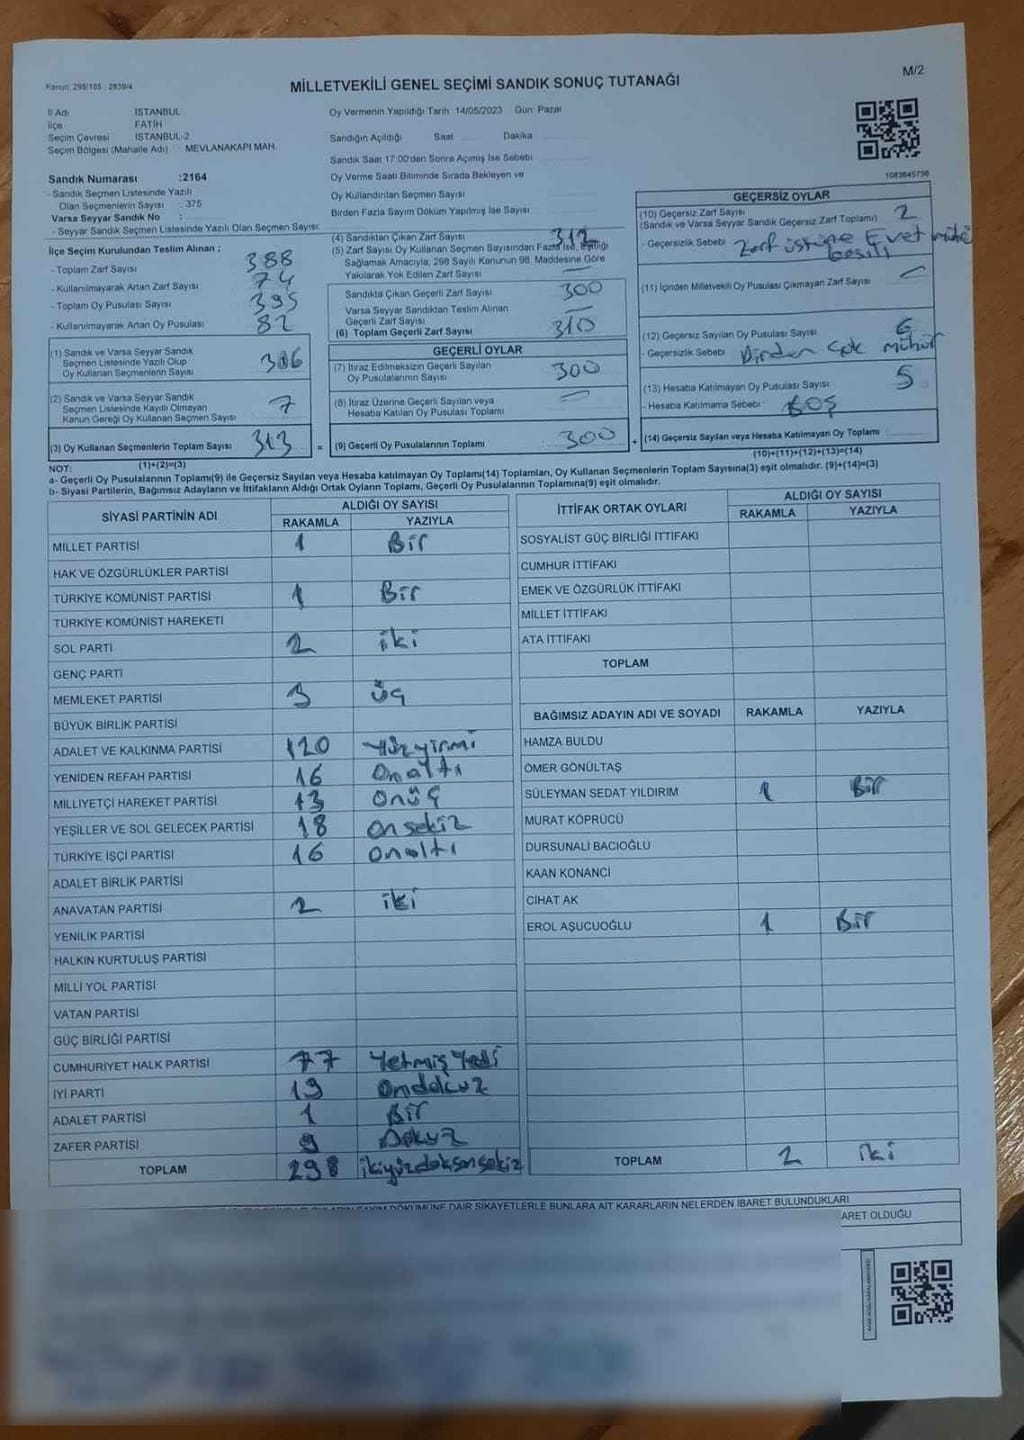 Kanun: 298/105 - 2839/4
MİLLETVEKİLİ GENEL SEÇİMİ SANDIK SONUÇ TUTANAĞI
M/2
İl Adı İSTANBUL
İlçe FATİH
Seçim Çevresi İSTANBUL-2
Seçim Bölgesi (Mahalle Adı) MEVLANAKAPI MAH.
Sandık Numarası :2164
- Sandık Seçmen Listesinde Yazılı
Olan Seçmenlerin Sayısı : 375
Varsa Seyyar Sandık No :
- Seyyar Sandık Seçmen Listesinde Yazılı Olan Seçmen Sayısı
Oy Vermenin Yapıldığı Tarih 14/05/2023 Gün: Pazar
Sandığın Açıldığı Saat Dakika
Sandık Saat 17:00'den Sonra Açımış İse Sebebi
Oy Verme Saati Bitiminde Sırada Bekleyen ve
Oy Kullandırılan Seçmen Sayısı
Birden Fazla Sayım Döküm Yapılmış İse Sayısı
1083845756
İlçe Seçim Kurulundan Teslim Alınan :
- Toplam Zarf Sayısı 388
- Kullanılmayarak Artan Zarf Sayısı 74
- Toplam Oy Pusulası Sayısı 395
- Kullanılmayarak Artan Oy Pusulası 82
(1) Sandık ve Varsa Seyyar Sandık
Seçmen Listesinde Yazılı Olup
Oy Kullanan Seçmenlerin Sayısı 306
(2) Sandık ve Varsa Seyyar Sandık
Seçmen Listesinde Kayıtlı Olmayan
Kanun Gereği Oy Kullanan Seçmen Sayısı 7
(3) Oy Kullanan Seçmenlerin Toplam Sayısı 313 =
(4) Sandıktan Çıkan Zarf Sayısı 312
(5) Zarf Sayısı Oy Kullanan Seçmen Sayısından Fazla İse, Eşitliği
Sağlamak Amacıyla; 298 Sayılı Kanunun 98. Maddesine Göre
Yakılarak Yok Edilen Zarf Sayısı —
Sandıkta Çıkan Geçerli Zarf Sayısı 300
Varsa Seyyar Sandıktan Teslim Alınan
Geçerli Zarf Sayısı —
(6) Toplam Geçerli Zarf Sayısı 310
GEÇERLİ OYLAR
(7) İtiraz Edilmeksizin Geçerli Sayılan
Oy Pusulalarının Sayısı 300
(8) İtiraz Üzerine Geçerli Sayılan veya
Hesaba Katılan Oy Pusulası Toplamı —
(9) Geçerli Oy Pusulalarının Toplamı : 300 +
GEÇERSİZ OYLAR
(10) Geçersiz Zarf Sayısı 2
(Sandık ve Varsa Seyyar Sandık Geçersiz Zarf Toplamı)
- Geçersizlik Sebebi Zarf üstüne Evet mühü
basılı
(11) İçinden Milletvekili Oy Pusulası Çıkmayan Zarf Sayısı —
(12) Geçersiz Sayılan Oy Pusulası Sayısı 6
- Geçersizlik Sebebi Birden çok mühür
(13) Hesaba Katılmayan Oy Pusulası Sayısı 5
- Hesaba Katılmama Sebebi : BOŞ
(14) Geçersiz Sayılan veya Hesaba Katılmayan Oy Toplamı
(10)+(11)+(12)+(13)=(14)
NOT: (1)+(2)=(3)
a- Geçerli Oy Pusulalarının Toplamı(9) ile Geçersiz Sayılan veya Hesaba katılmayan Oy Toplamı(14) Toplamları, Oy Kullanan Seçmenlerin Toplam Sayısına(3) eşit olmalıdır. (9)+(14)=(3)
b- Siyasi Partilerin, Bağımsız Adayların ve İttifakların Aldığı Ortak Oyların Toplamı, Geçerli Oy Pusulalarının Toplamına(9) eşit olmalıdır.
SİYASİ PARTİNİN ADI ALDIĞI OY SAYISI
RAKAMLA YAZIYLA
MİLLET PARTİSİ 1 Bir
HAK VE ÖZGÜRLÜKLER PARTİSİ
TÜRKİYE KOMÜNİST PARTİSİ 1 Bir
TÜRKİYE KOMÜNİST HAREKETİ
SOL PARTİ 2 iki
GENÇ PARTİ
MEMLEKET PARTİSİ 3 üç
BÜYÜK BİRLİK PARTİSİ
ADALET VE KALKINMA PARTİSİ 120 Yüzyirmi
YENİDEN REFAH PARTİSİ 16 Onaltı
MİLLİYETÇİ HAREKET PARTİSİ 13 Onüç
YEŞİLLER VE SOL GELECEK PARTİSİ 18 Onsekiz
TÜRKİYE İŞÇİ PARTİSİ 16 Onaltı
ADALET BİRLİK PARTİSİ
ANAVATAN PARTİSİ 2 iki
YENİLİK PARTİSİ
HALKIN KURTULUŞ PARTİSİ
MİLLİ YOL PARTİSİ
VATAN PARTİSİ
GÜÇ BİRLİĞİ PARTİSİ
CUMHURİYET HALK PARTİSİ 77 Yetmiş Yedi
İYİ PARTİ 19 Ondokuz
ADALET PARTİSİ 1 Bir
ZAFER PARTİSİ 9 Dokuz
TOPLAM 298 ikiyüzdoksansekiz
İTTİFAK ORTAK OYLARI ALDIĞI OY SAYISI
RAKAMLA YAZIYLA
SOSYALİST GÜÇ BİRLİĞİ İTTİFAKI
CUMHUR İTTİFAKI
EMEK VE ÖZGÜRLÜK İTTİFAKI
MİLLET İTTİFAKI
ATA İTTİFAKI
TOPLAM
BAĞIMSIZ ADAYIN ADI VE SOYADI RAKAMLA YAZIYLA
HAMZA BULDU
ÖMER GÖNÜLTAŞ
SÜLEYMAN SEDAT YILDIRIM 1 Bir
MURAT KÖPRÜCÜ
DURSUNALİ BACIOĞLU
KAAN KONANCİ
CİHAT AK
EROL AŞUCUOĞLU 1 Bir
TOPLAM 2 iki
DÖKÜMÜNE DAİR ŞİKAYETLERLE BUNLARA AİT KARARLARIN NELERDEN İBARET BULUNDUKLARI
ARET OLDUĞU